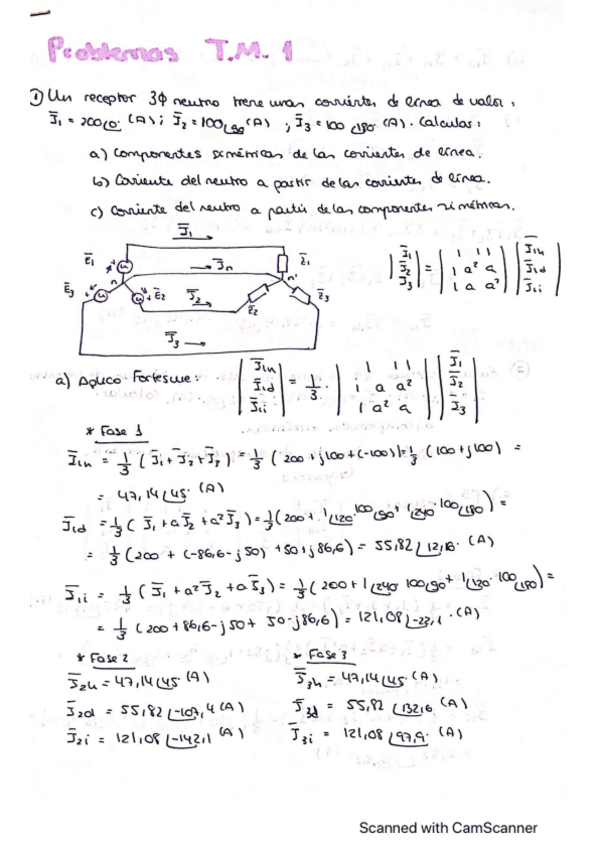 Problemas T.M. 1
① Un receptor 3ϕ neutro tiene unas corrientes de línea de valor:
J̅1 = 200∠0° (A); J̅2 = 100∠90 (A); J̅3 = 100∠180° (A). Calcular:
a) Componentes simétricas de las corrientes de línea.
b) Corriente del neutro a partir de las corrientes de línea.
c) Corriente del neutro a partir de las componentes simétricas.
J̅1
E̅1 Z̅1
J̅n
n n'
E̅3 E̅2 J̅2 Z̅2 Z̅3
J̅3
|J̅1| |1 1 1| |J̅1h|
|J̅2| = |1 a² a| |J̅1d|
|J̅3| |1 a a²| |J̅1i|
a) Aplico Fortescue:
|J̅1h| |1 1 1| |J̅1|
|J̅1d| = 1/3 · |1 a a²| |J̅2|
|J̅1i| |1 a² a| |J̅3|
* Fase 1
J̅1h = 1/3 (J̅1+J̅2+J̅3) = 1/3 (200+j100+(-100)) = 1/3 (100+j100) =
= 47,14∠45° (A)
J̅1d = 1/3 (J̅1+aJ̅2+a²J̅3) = 1/3 (200+1∠120·100∠90+1∠240·100∠180) =
= 1/3 (200+(-86,6-j50)+50+j86,6) = 55,82∠12,6° (A)
J̅1i = 1/3 (J̅1+a²J̅2+aJ̅3) = 1/3 (200+1∠240·100∠90+1∠120·100∠180) =
= 1/3 (200+86,6-j50+50-j86,6) = 121,08∠-22,1° (A)
* Fase 2 * Fase 3
J̅2h = 47,14∠45° (A) J̅3h = 47,14∠45° (A)
J̅2d = 55,82∠-107,4 (A) J̅3d = 55,82∠132,6 (A)
J̅2i = 121,08∠-142,1 (A) J̅3i = 121,08∠97,9° (A)
Scanned with CamScanner